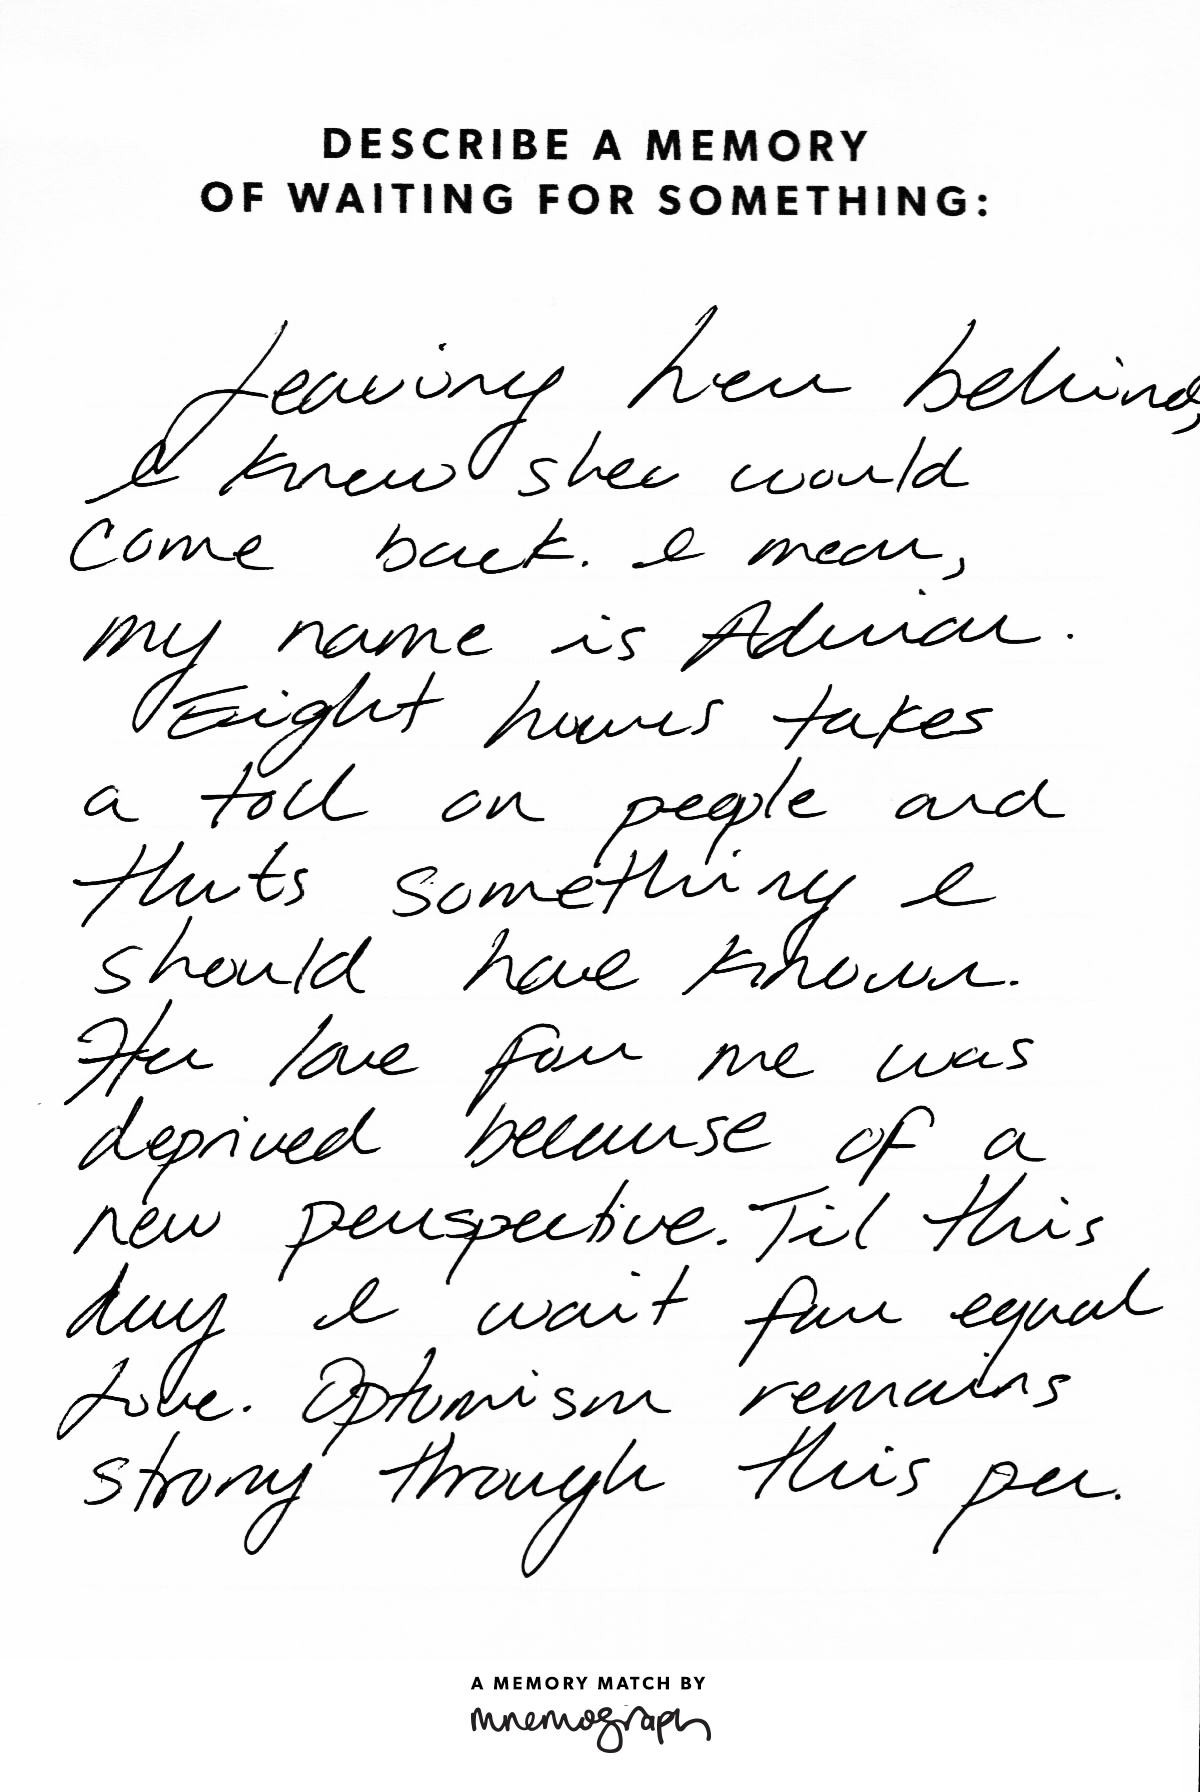 DESCRIBE A MEMORY
OF WAITING FOR SOMETHING:
Leaving her behind,
I knew she would
come back. I mean,
my name is Adrian.
Eight hours takes
a toll on people and
thats something I
should have known.
Her love for me was
deprived because of a
new perspective. Til this
day I wait for equal
Love. Optomism remains
strong through this pen.
A MEMORY MATCH BY
mnemograph